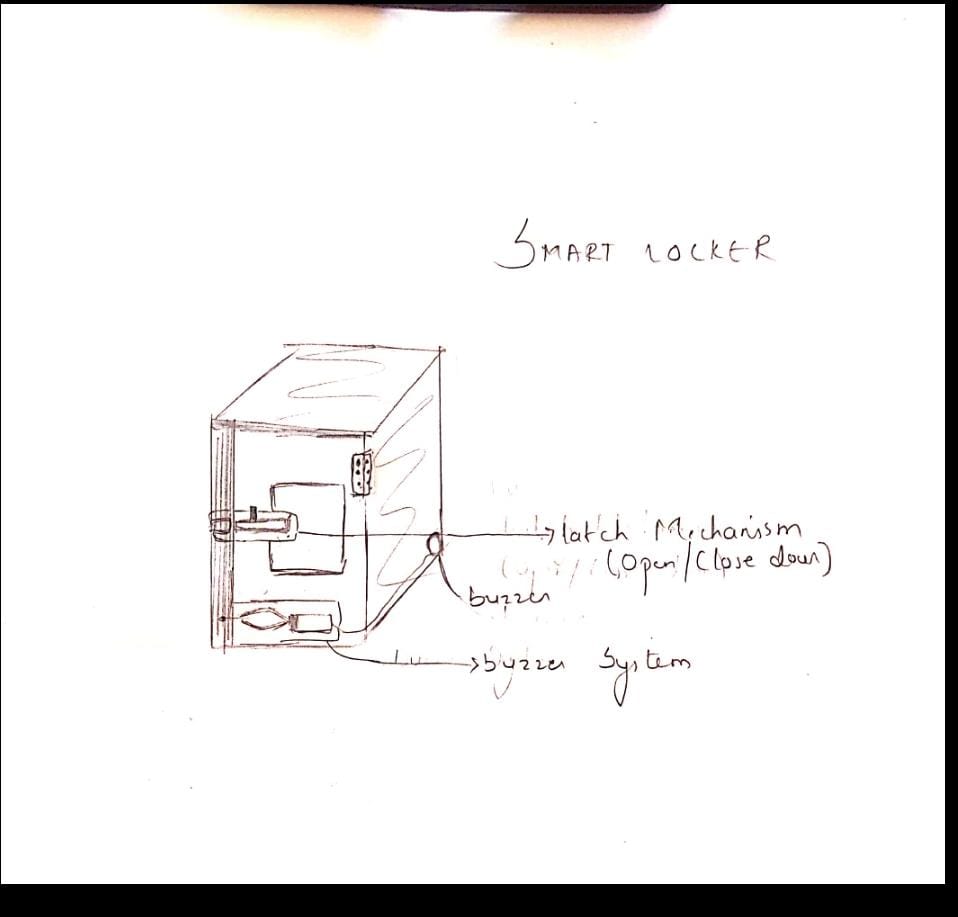 SMART LOCKER
latch Mechanism
(Open/Close door)
buzzer
buzzer System